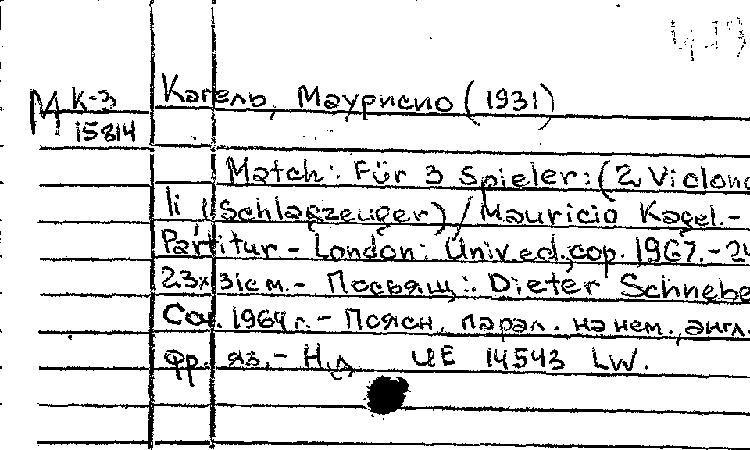 М К-3
15814
Кагель, Маурисио (1931)
Match: Für 3 Spieler: (2 Violon
li (Schlagzeuger) / Mauricio Kagel.-
Partitur - London: Univ. ed., cop. 1967. - 24
23x31см.- Посвящ.: Dieter Schnebe
Соч. 1964 г. - Поясн. парал. на нем., англ.
фр. яз. - Н.д UE 14543 LW.